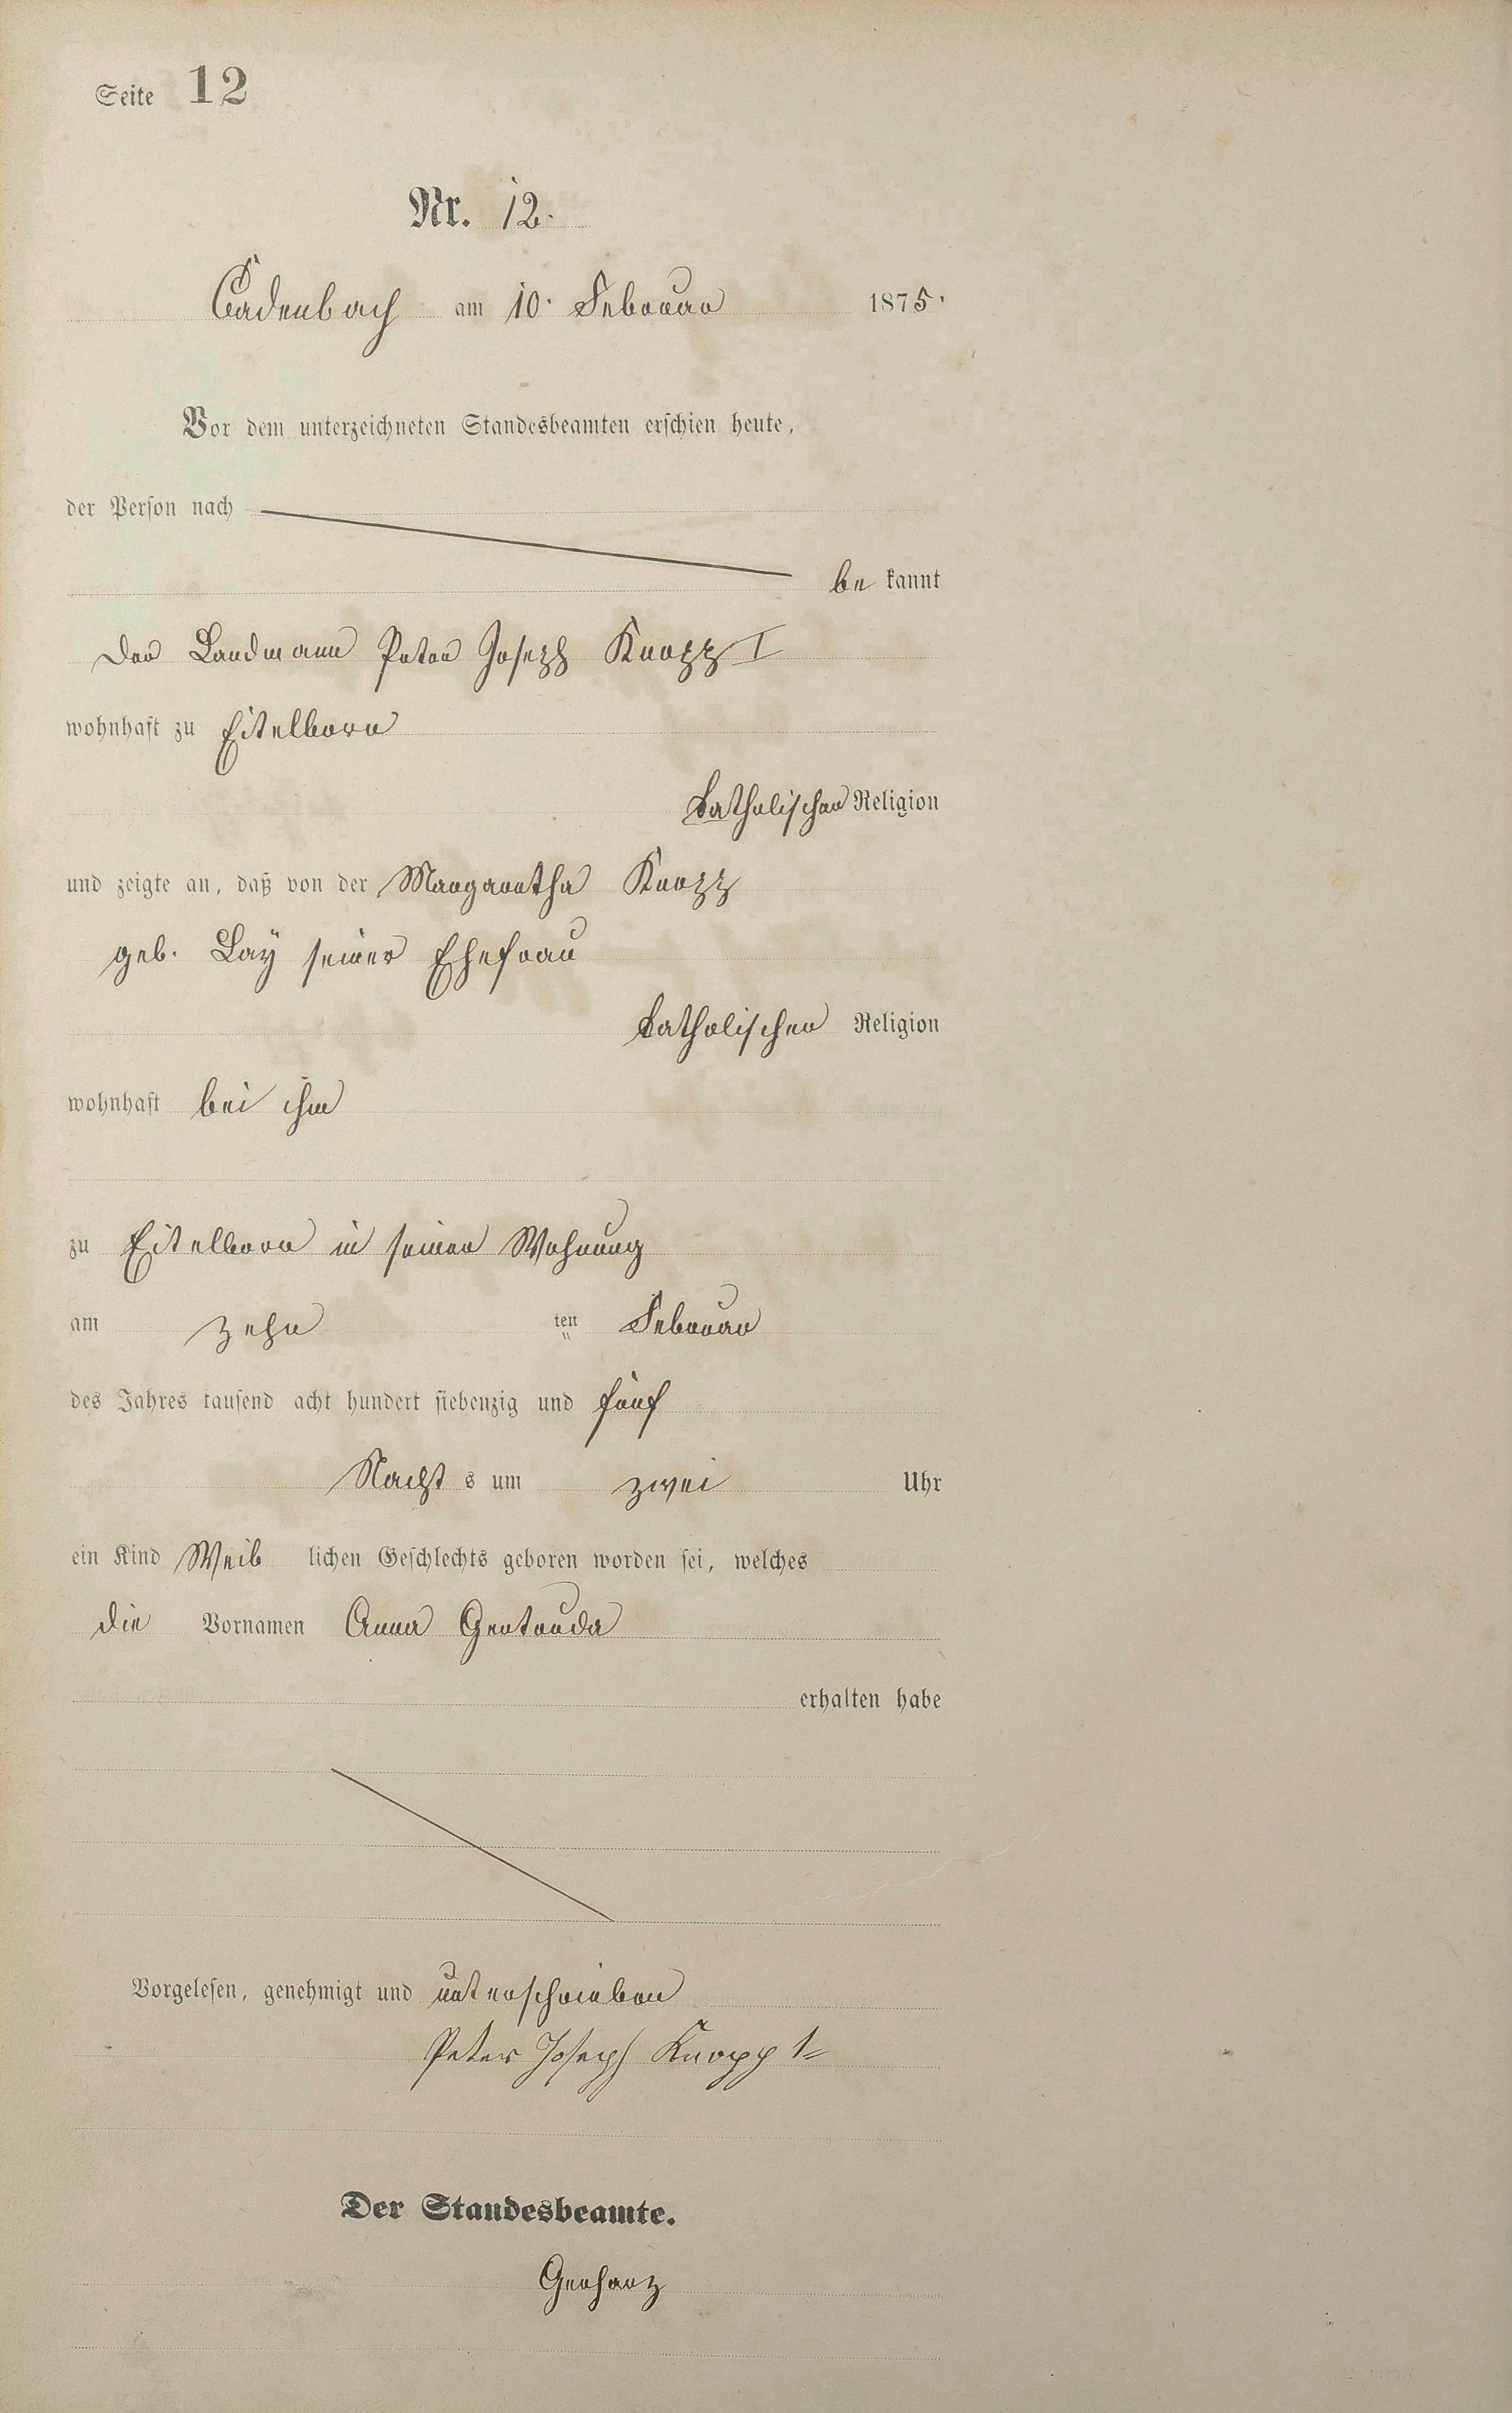 Seite 12
Nr. 12.
Cadenbach am 10. Februar 1875.
Vor dem unterzeichneten Standesbeamten erschien heute,
der Person nach
be kannt
der Landmann Peter Joseph Knopp I
wohnhaft zu Eitelborn
katholischer Religion
und zeigte an, daß von der Margaretha Knopp
geb. Lay seiner Ehefrau
katholischer Religion
wohnhaft bei ihm
zu Eitelborn in seiner Wohnung
am zehn ten Februar
des Jahres tausend acht hundert siebenzig und fünf
Nacht s um zwei Uhr
ein Kind Weib lichen Geschlechts geboren worden sei, welches
die Vornamen Anna Gertruda
erhalten habe
Vorgelesen, genehmigt und unterschrieben
Peter Joseph Knopp 1
Der Standesbeamte.
Gerharz